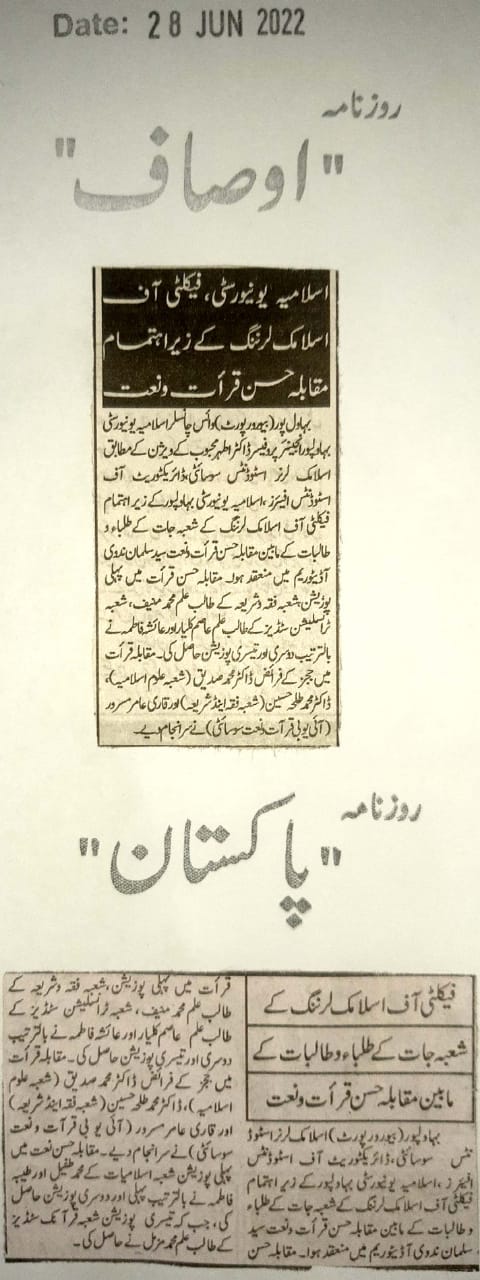 Date: 28 JUN 2022
روزنامہ
"اوصاف"
اسلامیہ یونیورسٹی، فیکلٹی آف
اسلامک لرننگ کے زیر اہتمام
مقابلہ حسن قرأت و نعت
بہاول پور (بیورو رپورٹ) وائس چانسلر اسلامیہ یونیورسٹی
بہاولپور انجینئر پروفیسر ڈاکٹر اطہر محبوب کے ویژن کے مطابق
اسلامک لرنرز اسٹوڈنٹس سوسائٹی، ڈائریکٹوریٹ آف
اسٹوڈنٹس افیئرز، اسلامیہ یونیورسٹی بہاولپور کے زیر اہتمام
فیکلٹی آف اسلامک لرننگ کے شعبہ جات کے طلباء و
طالبات کے مابین مقابلہ حسن قرأت و نعت سید سلمان ندوی
آڈیٹوریم میں منعقد ہوا۔ مقابلہ حسن قرأت میں پہلی
پوزیشن شعبہ فقہ و شریعہ کے طالب علم محمد منیف، شعبہ
ٹرانسلیشن سٹڈیز کے طالب علم عاصم کلیار اور عائشہ فاطمہ نے
بالترتیب دوسری اور تیسری پوزیشن حاصل کی۔ مقابلہ قرأت
میں ججز کے فرائض ڈاکٹر محمد صدیق (شعبہ علوم اسلامیہ)،
ڈاکٹر محمد طلحہ حسین (شعبہ فقہ اینڈ شریعہ) اور قاری عامر مسرور
(آئی یو بی قرآت و نعت سوسائٹی) نے سرانجام دیے۔
روزنامہ
"پاکستان"
فیکلٹی آف اسلامک لرننگ کے
شعبہ جات کے طلباء و طالبات کے
مابین مقابلہ حسن قرأت و نعت
بہاولپور (بیورو رپورٹ) اسلامک لرنرز اسٹوڈ
نٹس سوسائٹی، ڈائریکٹوریٹ آف اسٹوڈنٹس
افیئرز، اسلامیہ یونیورسٹی بہاولپور کے زیر اہتمام
فیکلٹی آف اسلامک لرننگ کے شعبہ جات کے طلباء
و طالبات کے مابین مقابلہ حسن قرأت و نعت سید
سلمان ندوی آڈیٹوریم میں منعقد ہوا۔ مقابلہ حسن
قرأت میں پہلی پوزیشن، شعبہ فقہ و شریعہ کے
طالب علم محمد منیف، شعبہ ٹرانسلیشن سٹڈیز کے
طالب علم عاصم کلیار اور عائشہ فاطمہ نے بالترتیب
دوسری اور تیسری پوزیشن حاصل کی۔ مقابلہ قرأت
میں ججز کے فرائض ڈاکٹر محمد صدیق (شعبہ علوم
اسلامیہ)، ڈاکٹر محمد طلحہ حسین (شعبہ فقہ اینڈ شریعہ)
اور قاری عامر مسرور (آئی یو بی قرأت و نعت
سوسائٹی) نے سرانجام دیے۔ مقابلہ حسن نعت میں
پہلی پوزیشن شعبہ اسلامیات کے محمد طفیل اور طیبہ
فاطمہ نے بالترتیب پہلی اور دوسری پوزیشن حاصل
کی، جب کہ تیسری پوزیشن شعبہ قرآنک سٹڈیز
کے طالب علم محمد مزمل نے حاصل کی۔